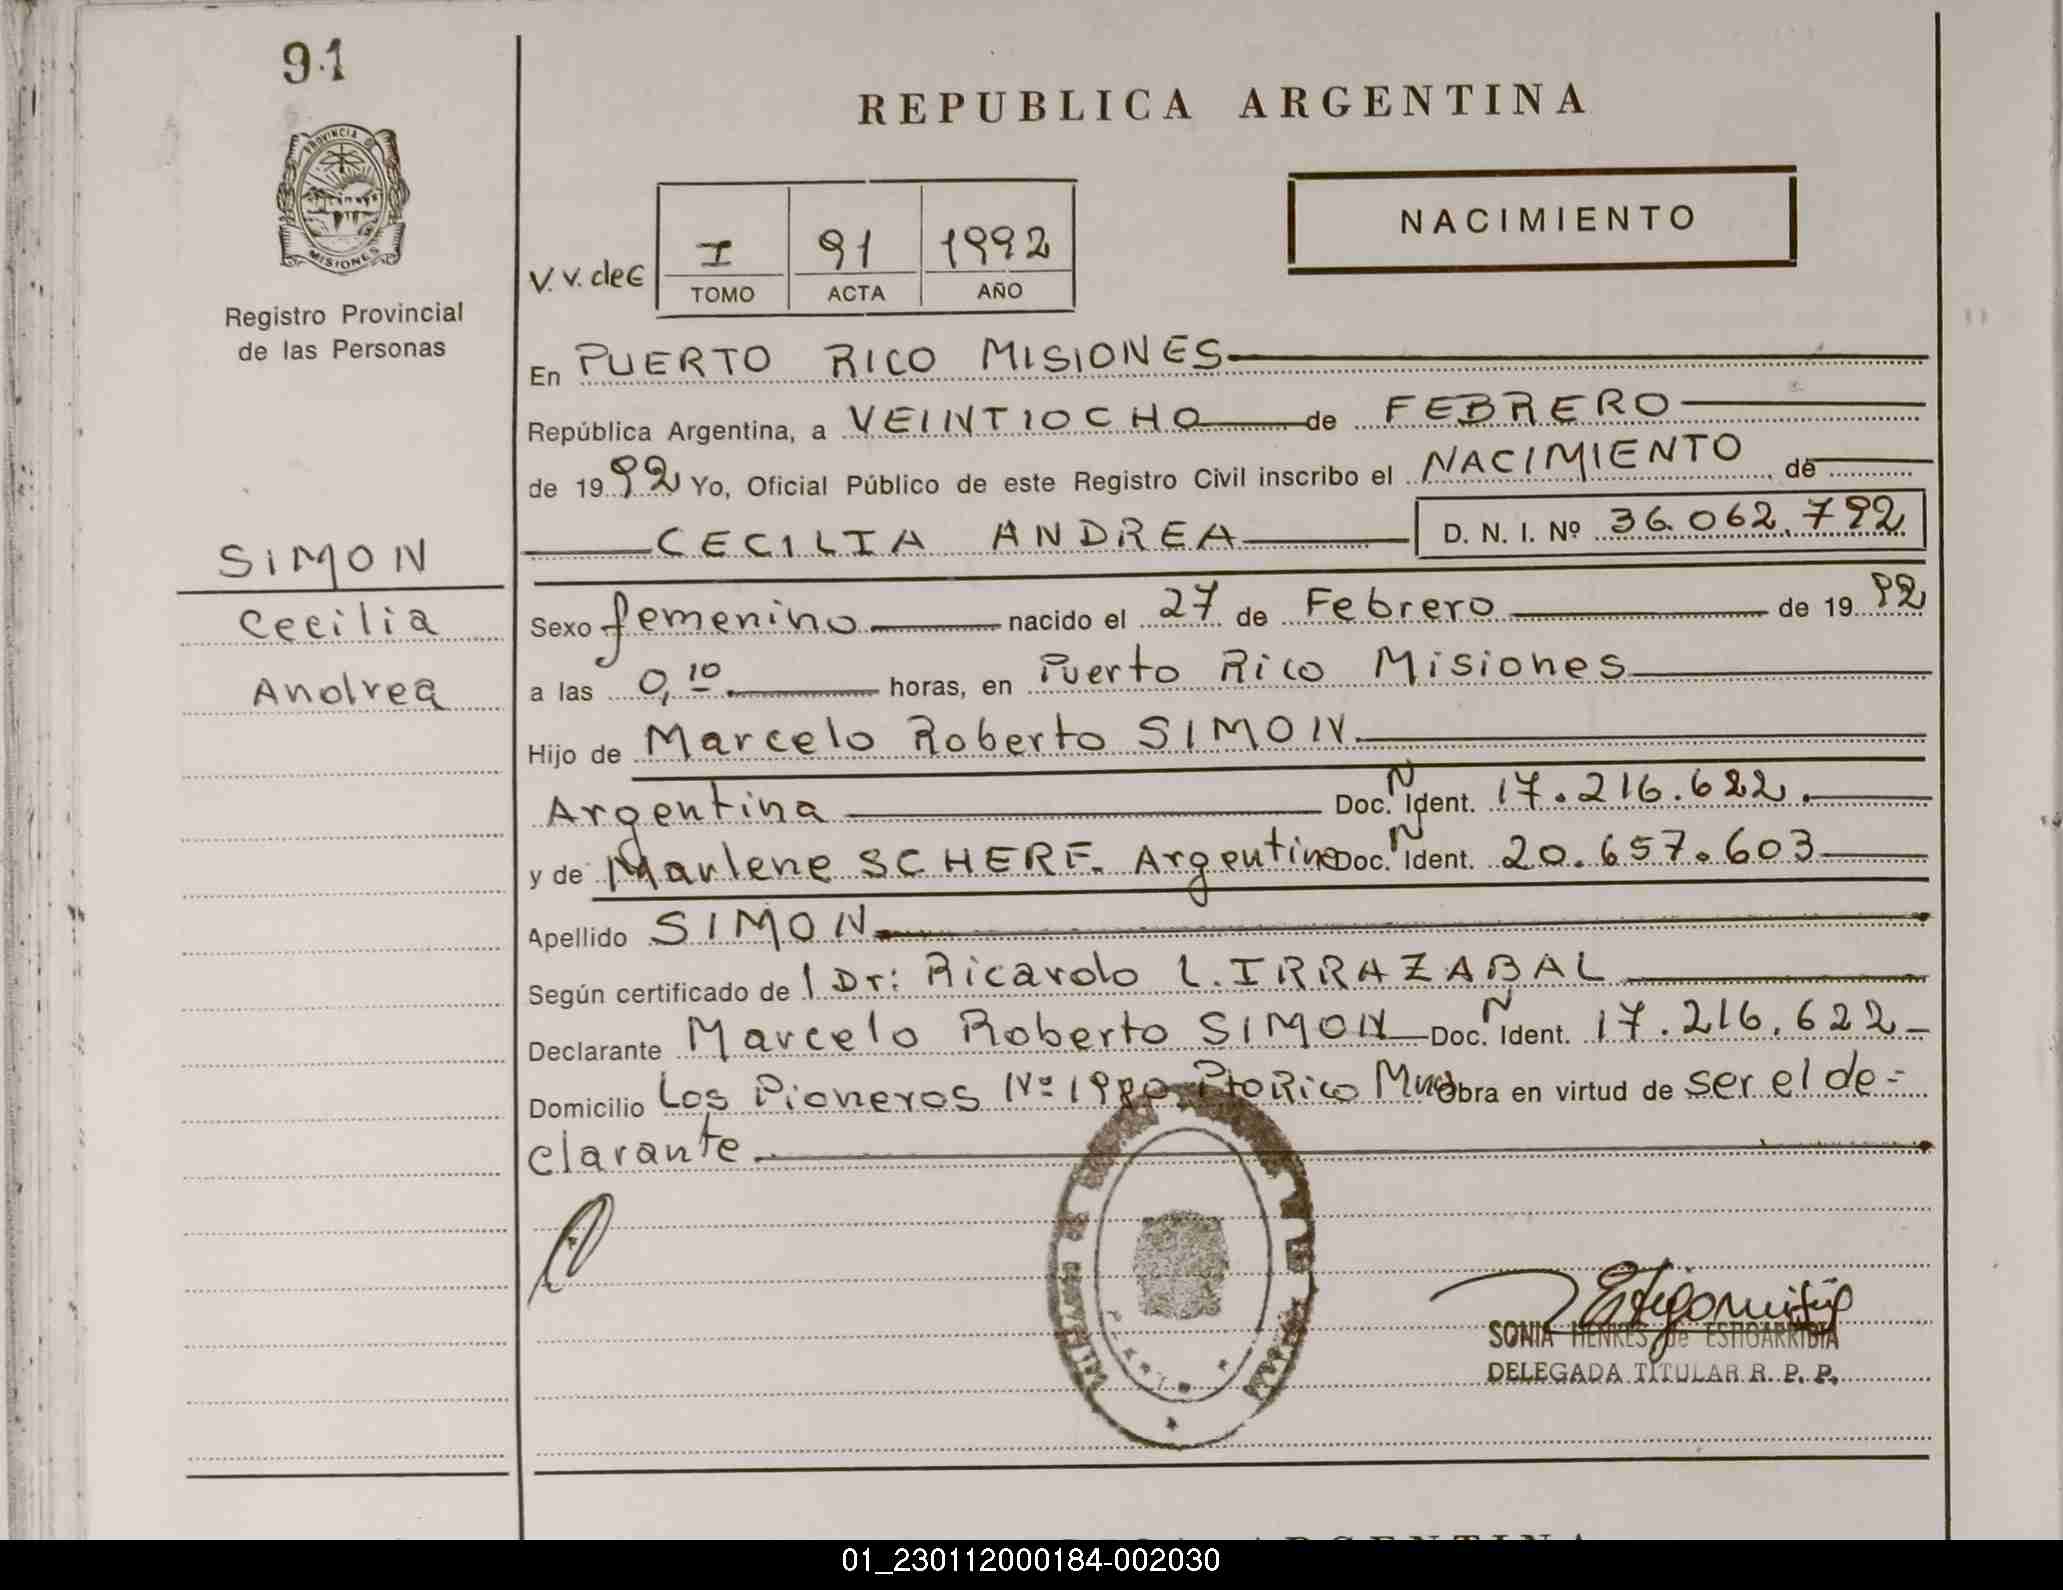 91
REPUBLICA ARGENTINA
PROVINCIA DE
MISIONES
NACIMIENTO
V.V. de €
I 91 1992
TOMO ACTA AÑO
Registro Provincial
de las Personas
En PUERTO RICO MISIONES
República Argentina, a VEINTIOCHO de FEBRERO
de 1992 Yo, Oficial Público de este Registro Civil inscribo el NACIMIENTO de
CECILIA ANDREA D. N. I. Nº 36.062.792
SIMON
Cecilia
Andrea
Sexo femenino nacido el 27 de Febrero de 1992
a las 0,10 horas, en Puerto Rico Misiones
Hijo de Marcelo Roberto SIMON
Argentina Doc. N Ident. 17.216.622.
y de Marlene SCHERF. Argentina Doc. N Ident. 20.657.603
Apellido SIMON
Según certificado de l Dr: Ricardo L. IRRAZABAL
Declarante Marcelo Roberto SIMON Doc. N Ident. 17.216.622
Domicilio Los Pioneros Nº 1980 Pto Rico Mnes Obra en virtud de ser el de=
clarante
SONIA HENKES de ESTIGARRIBIA
DELEGADA TITULAR R. P. P.
01_230112000184-002030